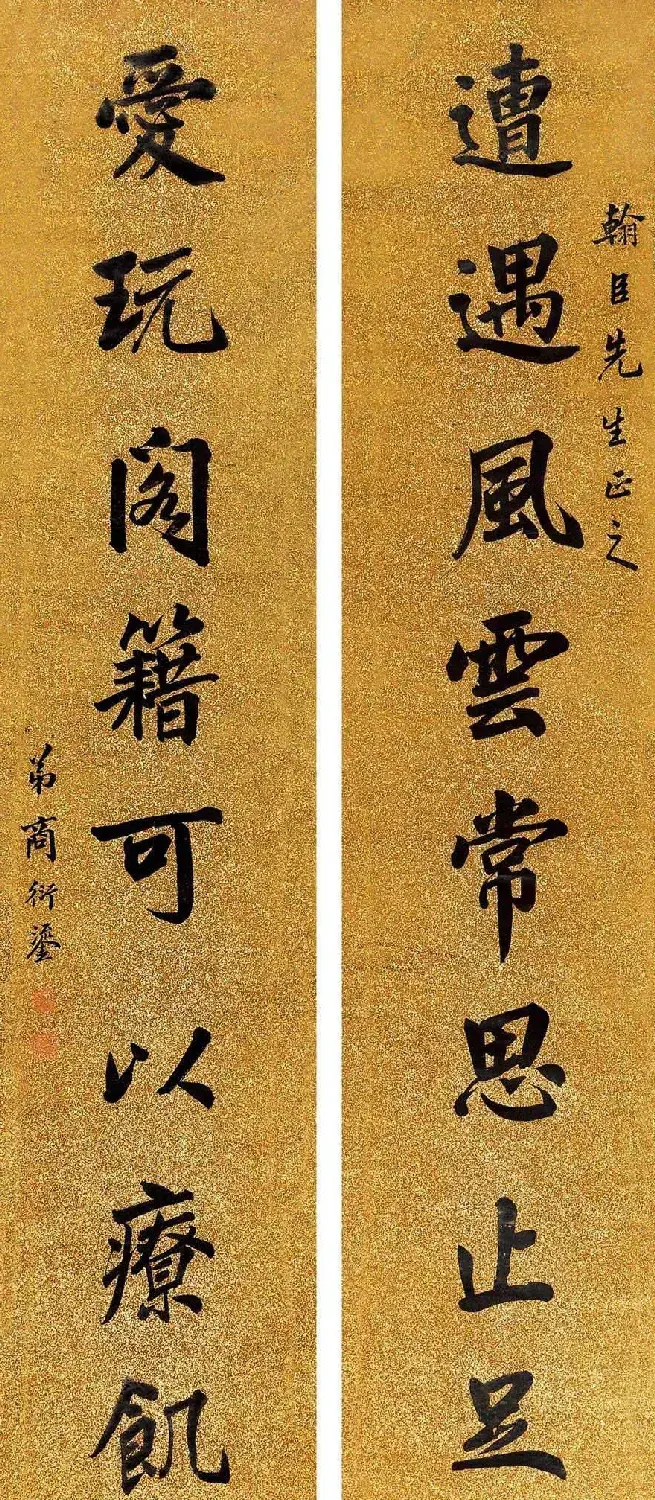 翰臣先生正之
遭遇風雲常思止足
愛玩阁籍可以療飢
弟商衍鎏